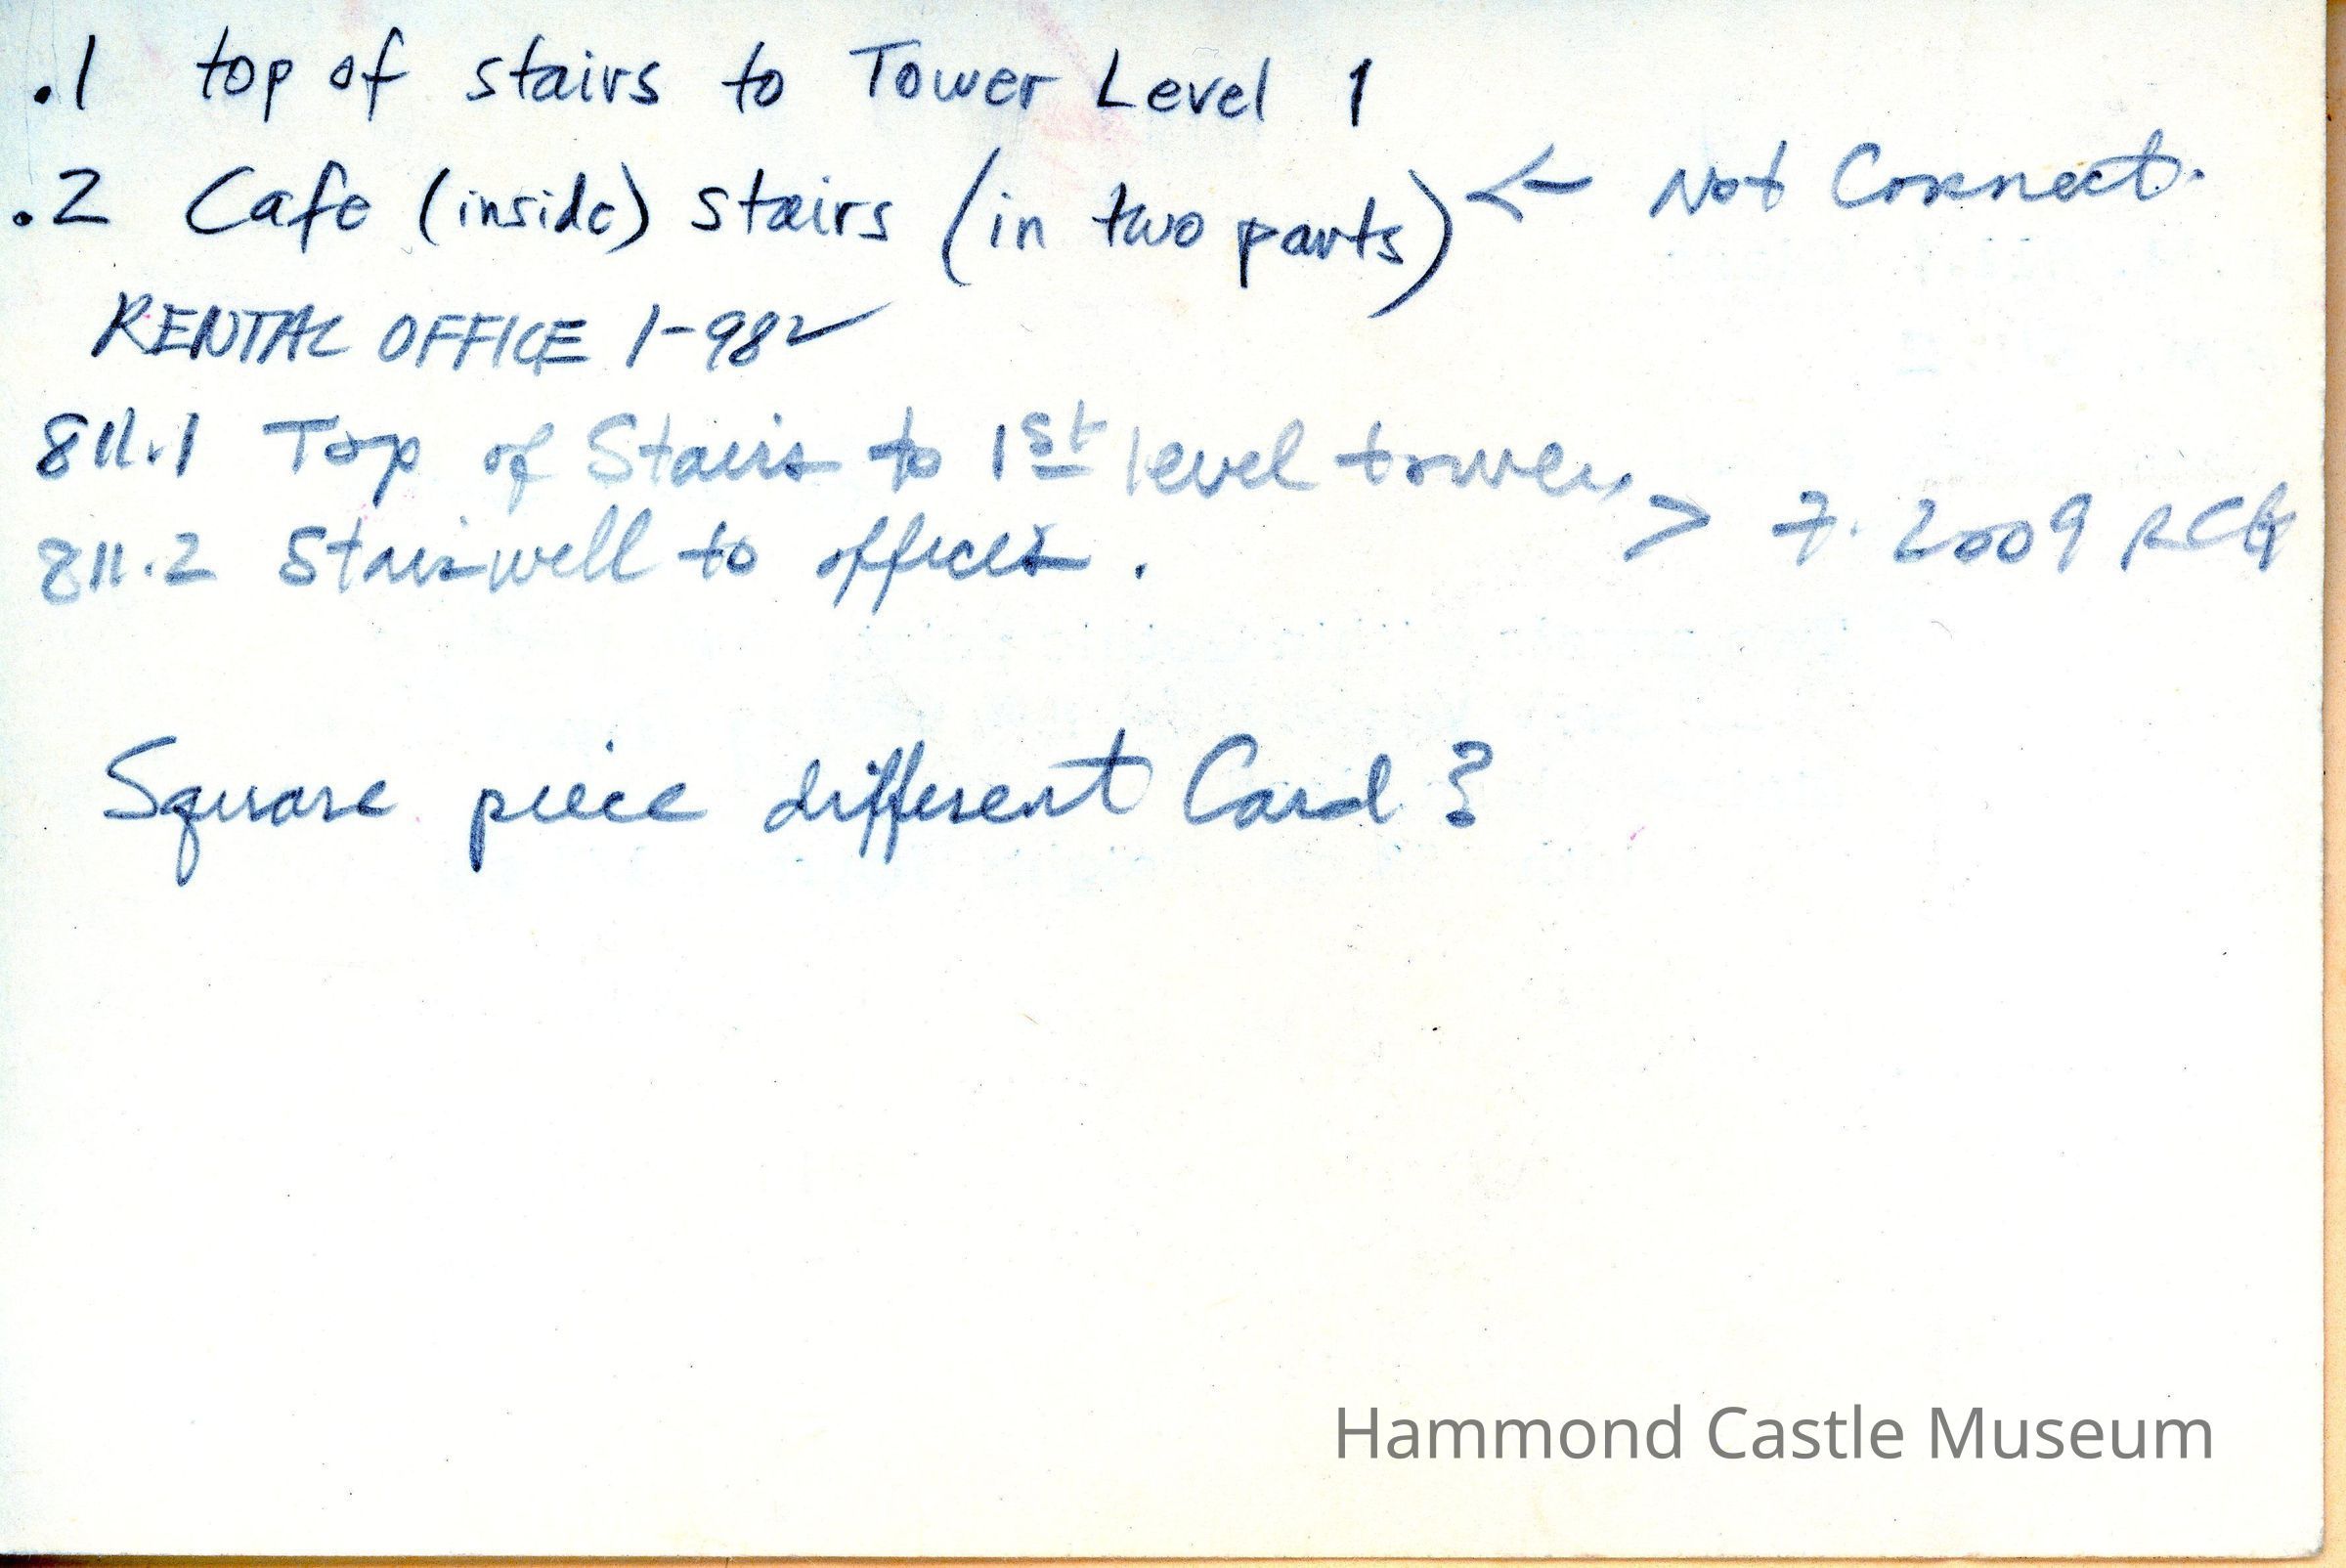 .1 top of stairs to Tower Level 1
.2 Cafe (inside) stairs (in two parts) ← Not Correct.
RENTAL OFFICE 1-98 ✓
811.1 Top of Stairs to 1st level tower,
811.2 Stairwell to offices. > 7. 2009 RCG
Square piece different Card?
Hammond Castle Museum